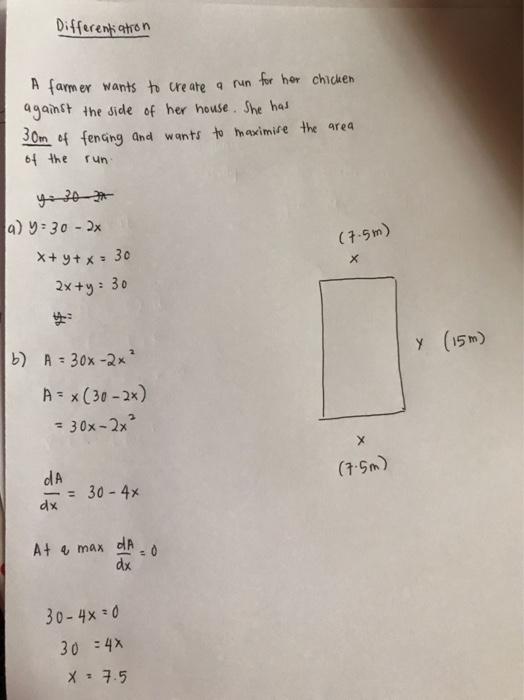 Differentiation
A farmer wants to create a run for her chicken
against the side of her house. She has
30m of fencing and wants to maximise the area
of the run.
y = 30 - 2x
a) y = 30 - 2x
x + y + x = 30
2x + y = 30
y =
(7.5m)
x
y (15m)
x
(7.5m)
b) A = 30x - 2x²
A = x(30 - 2x)
= 30x - 2x²
dA/dx = 30 - 4x
At a max dA/dx = 0
30 - 4x = 0
30 = 4x
x = 7.5